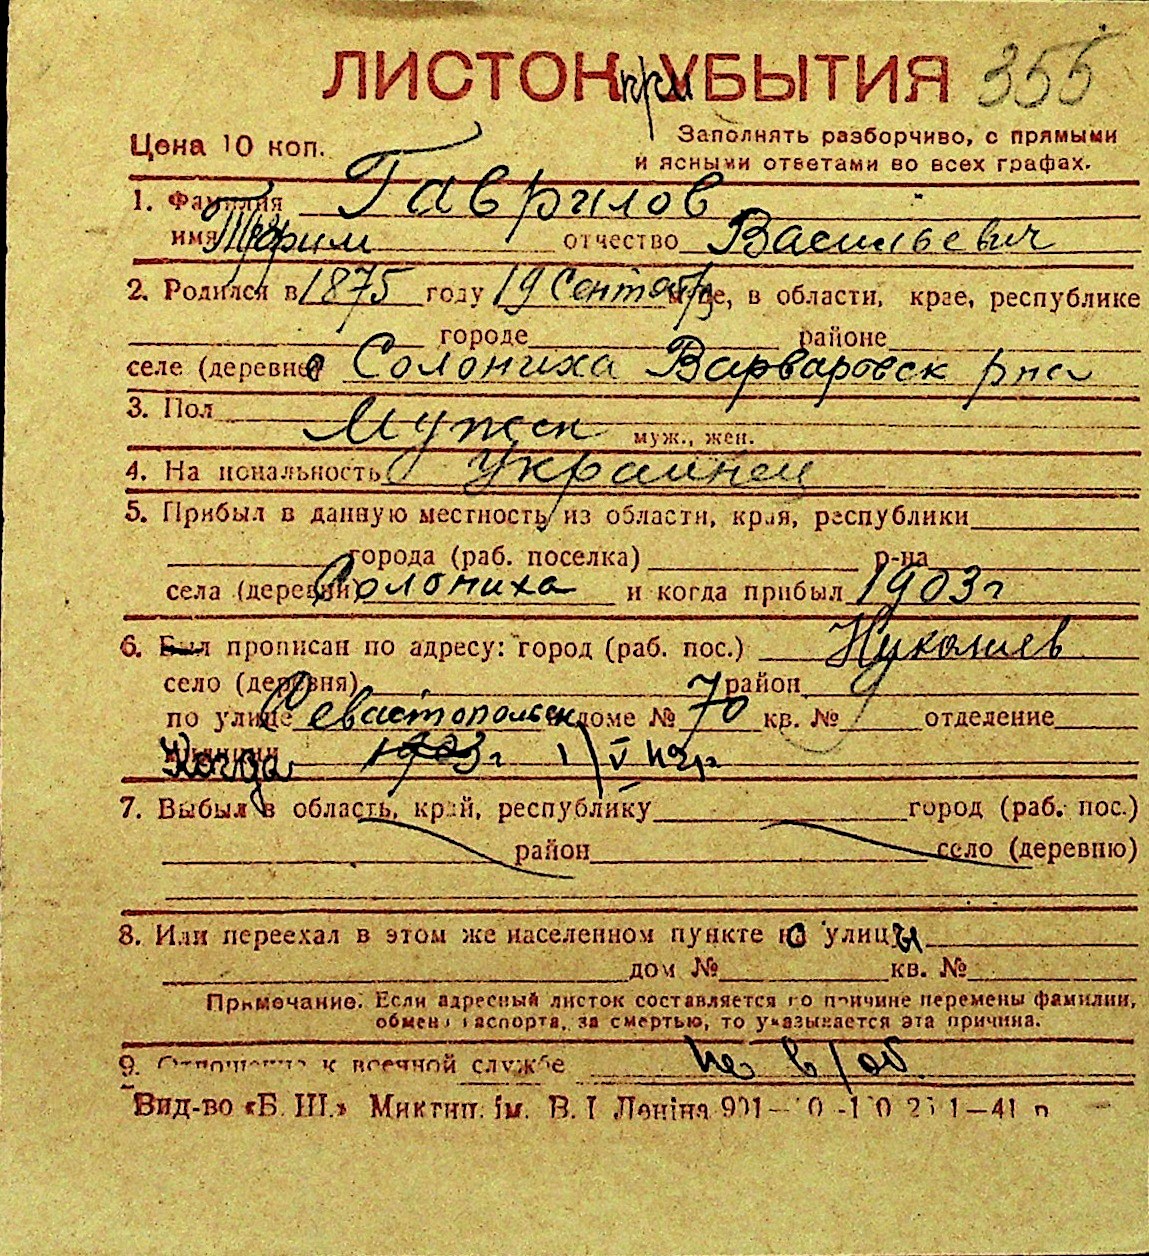 ЛИСТОК при УБЫТИЯ 355
Цена 10 коп.
Заполнять разборчиво, с прямыми
и ясными ответами во всех графах.
1. Фамилия Гаврилов
имя Трофим отчество Васильевич
2. Родился в 1875 году 19 Сентябр м-це, в области, крае, республике
городе районе
селе (деревне) Солониха Варваровск
3. Пол Мужск муж., жен.
4. Национальность Украинец
5. Прибыл в данную местность из области, края, республики
города (раб. поселка) р-на
села (деревни) Солониха и когда прибыл 1903 г
6. Был прописан по адресу: город (раб. пос.) Николаев
село (деревня) район
по улице Севастопольск доме № 70 кв. № отделение
Когда 1903 г 1/V 42 г
7. Выбыл в область, край, республику город (раб. пос.)
район село (деревню)
8. Или переехал в этом же населенном пункте на улицу
дом № кв. №
Примечание. Если адресный листок составляется по причине перемены фамилии,
обмена паспорта, за смертью, то указывается эта причина.
9. Отношение к военной службе не в/об
Вид-во «Б. Ш.» Миктип. ім. В. І Леніна